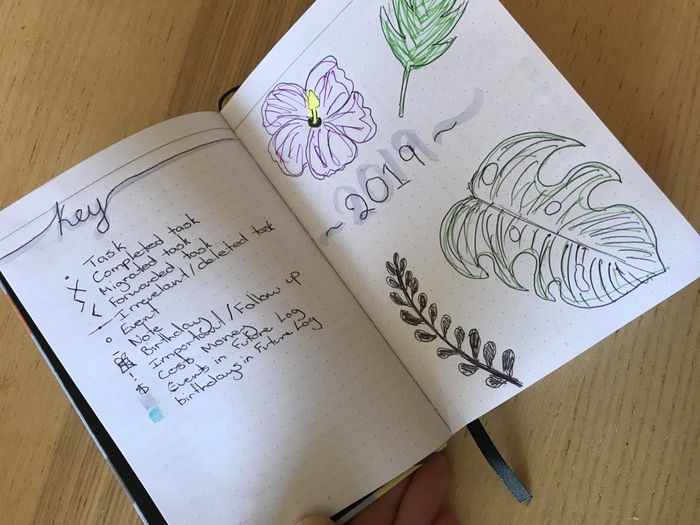 key
• Task
X Completed task
> Migrated task
< Forwarded task
— Irrelevant/deleted task
o Event
- Note
Birthday
! Important/Follow up
$ Costs Money
Events in Future Log
birthdays in Future Log
~2019~